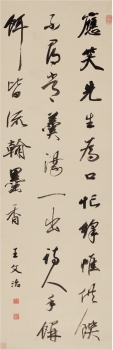 應笑先生為口忙絳帷供饌
不尋常羹湯一出詩人手餅
餌皆流翰墨香
王文治